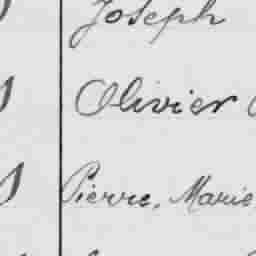 Joseph
Olivier
Pierre, Marie